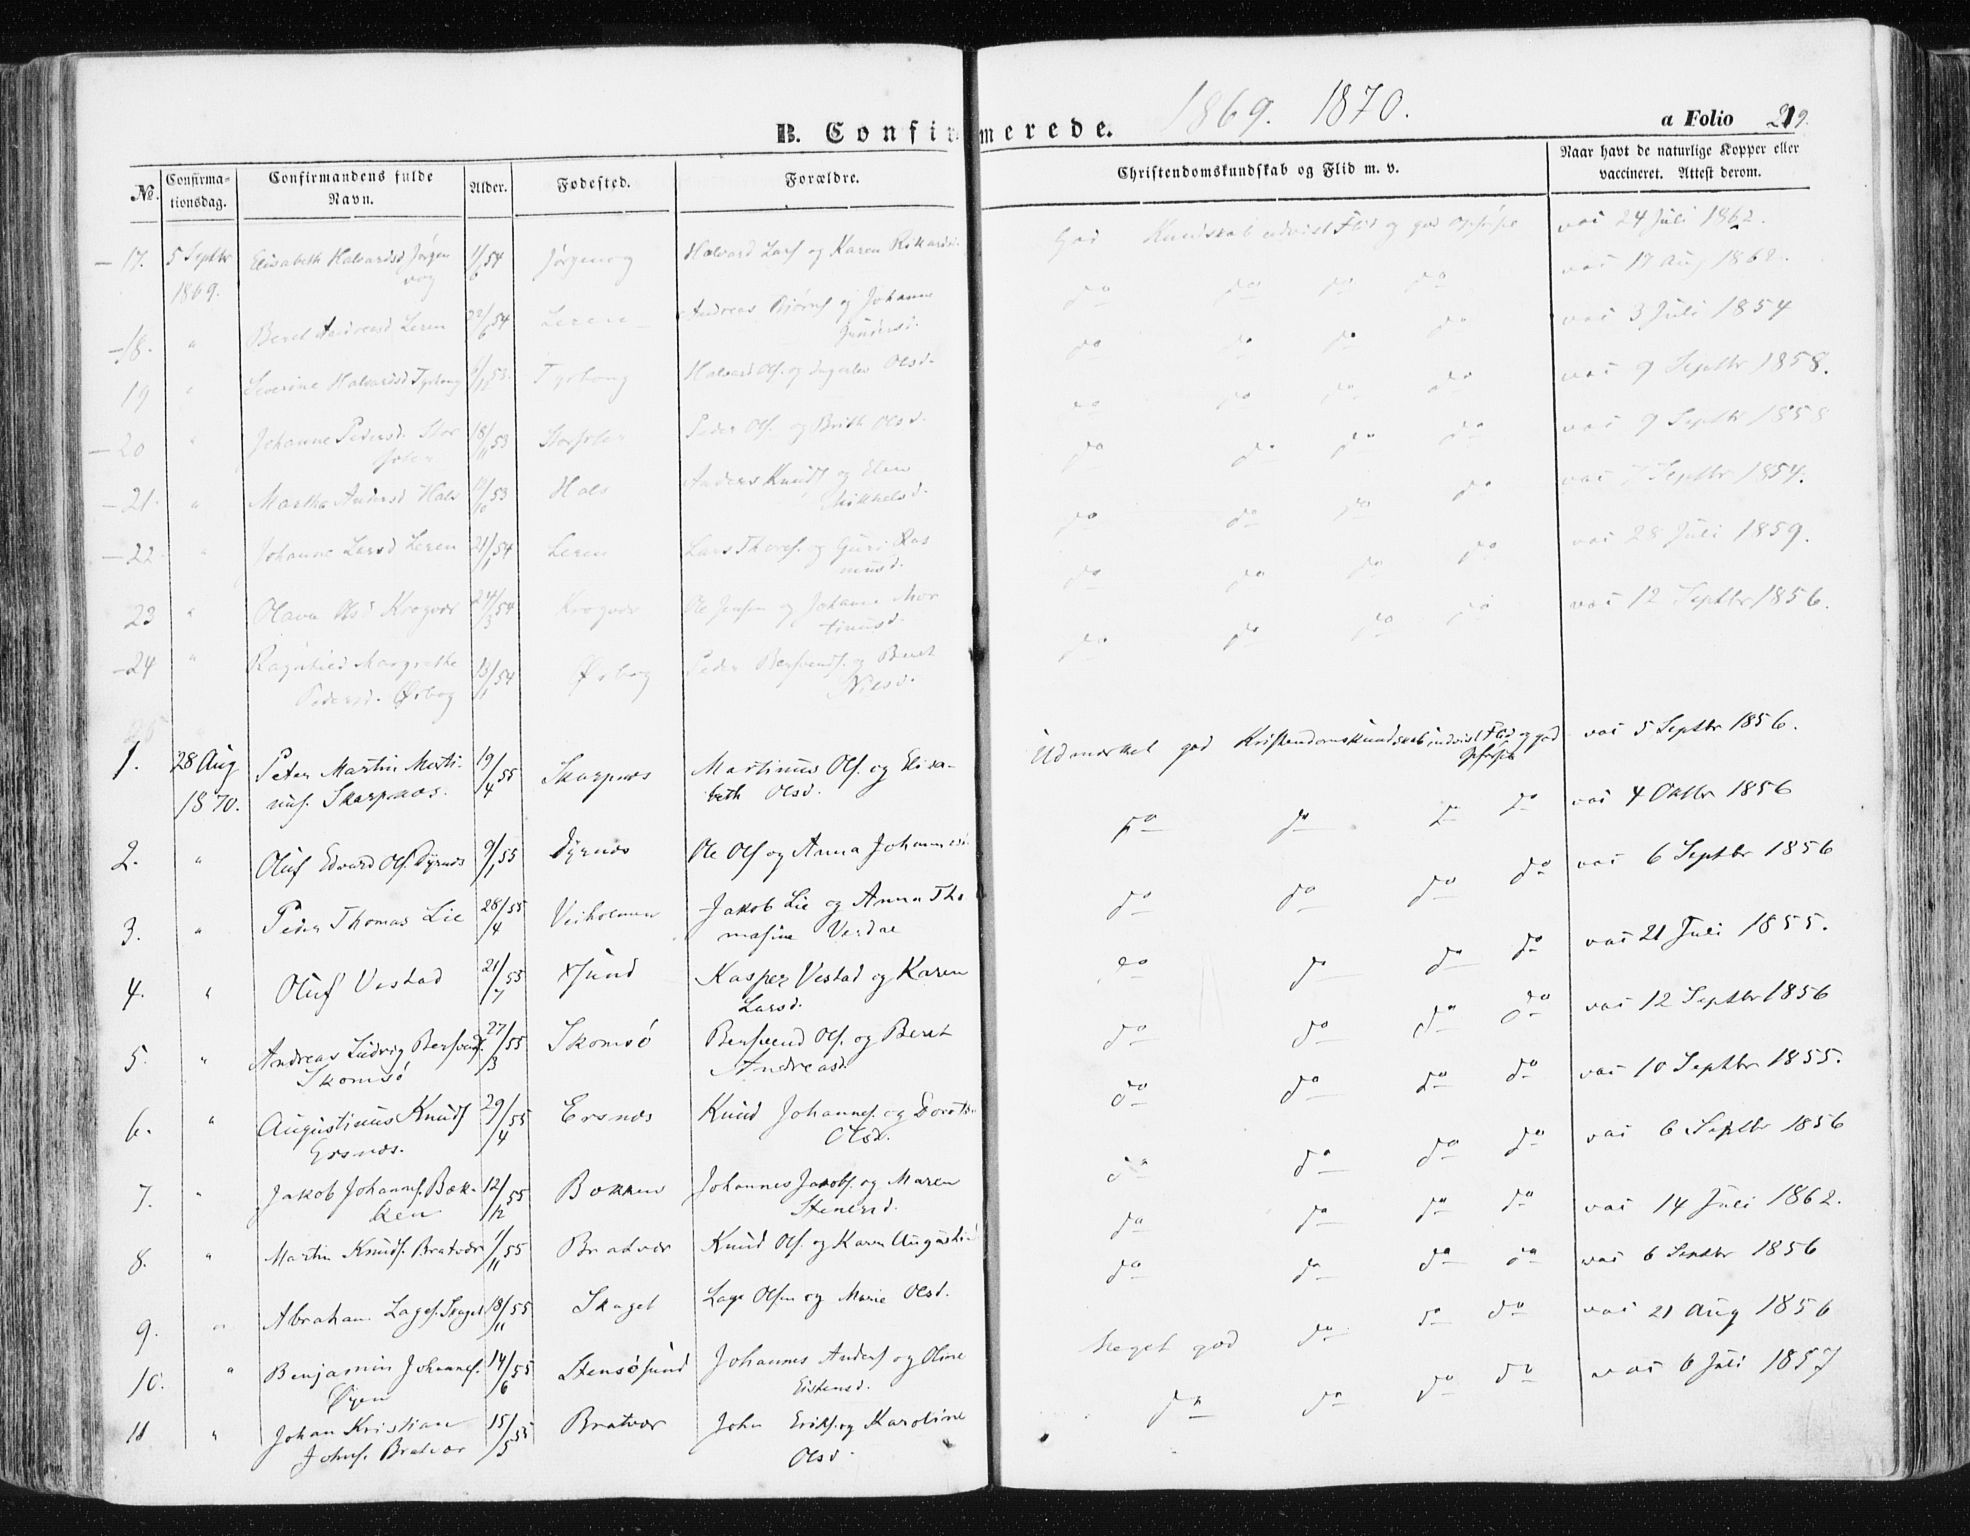 B. Confirmerede. 1869. 1870. a Folio 219.
№. Confirmationsdag. Confirmandens fulde Navn. Alder. Fødested. Forældre. Christendomskundskab og Flid m. v. Naar havt de naturlige Kopper eller vaccineret. Attest derom.
17. 5 Septbr 1869. Elisabeth Halvardsd Jørgenvog 1/6 54 Jørgenvog Halvard Lars og Karen Rikardsd. God Kundskab udvist Flid og god Opførsel vac 24 Juli 1862.
18. " Beret Andreasd Leren 22/6 54 Leren Andreas Bjørns og Johanne Gundersd. do do do do vac 17 Aug 1862.
19 " Severine Halvardsd Tyrhoug /12 53. Tyrhoug Halvard Ols. og Ingeborg Olsd. do do do do vac 3 Juli 1854
20 " Johanne Pedersd. Stor 18/11 53 Peder Ols. og Brith Olsd. do do do do vac 9 Septbr 1858.
21. " Martha Andersd Hals /10 53 Hals Anders Knuds og Elen Mikkelsd. do do do do vac 9 Septbr 1858
22 " Johanne Larsd Leren 21/1 54 Leren Lars Thores. og Guri Rasmusd. do do do do vac 7 Septbr 1854.
23 " Olava Olsd Krogvær 24/3 54 Krogvær Ole Jensen og Johanne Martinusd. do do do do vac 28 Juli 1859.
24 " Ragnhild Margrethe Pedersd. Ørbog 13/1 54 Ørbog Peder Bersvends. og Beret Nilsd. do do do do vac 12 Septbr 1856.
25
1. 28 Aug 1870. Peter Martin Martinus. Skarpnæs. 19/4 55 Skarpnæs Martinus Ols. og Elisabeth Olsd. Udmærket god Kristendomskundskab udvist Flid og god Opførsel vac 5 Septbr 1856.
2. " Oluf Edvard Ols. Dyrnæs 9/1 55 Dyrnæs Ole Ols og Anna Johannesd. do do do do vac 4 Oktbr 1856
3. " Peder Thomas Lie 28/4 55 Veiholmen Jakob Lie og Anna Thomasine Verdal do do do do vac 6 Septbr 1856
4. " Oluf Vestad 21/7 55 Kasper Vestad og Karen Larsd. do do do do vac 21 Juli 1855.
5. " Andreas Ludvig Bersvends. Skomsø 27/3 55 Skomsø Bersvend Ols. og Beret Andreasd. do do do do vac 12 Septbr 1856
6. " Augustinus Knuds Ersnæs. 29/4 55 Ersnæs Knud Johannes. og Dorothe Olsd. do do do do vac 10 Septbr 1855.
7. " Jakob Johannes. Bækken 12/12 55 Bækken Johannes Jakobs. og Maren Stenersd. do do do do vac 6 Septbr 1856
8. " Martin Knuds. Bratvær 1/11 55 Bratvær Knud Ols. og Karen Augustind. do do do do vac 14 Juli 1862.
9. " Abraham Lages. Skaget 18/11 55 Skaget Lage Olsen og Marie Olsd. do do do do vac 6 Septbr 1856
10. " Benjamin Johannes. Øyen 14/6 55 Stensøsund Johannes Anders og Oline Eistensd. Meget god do do do vac 21 Aug 1856
11 " Johan Kristian Johns. Bratvær 15/5 55 Bratvær John Eriks. og Karoline Olsd. do do do do vac 6 Juli 1857